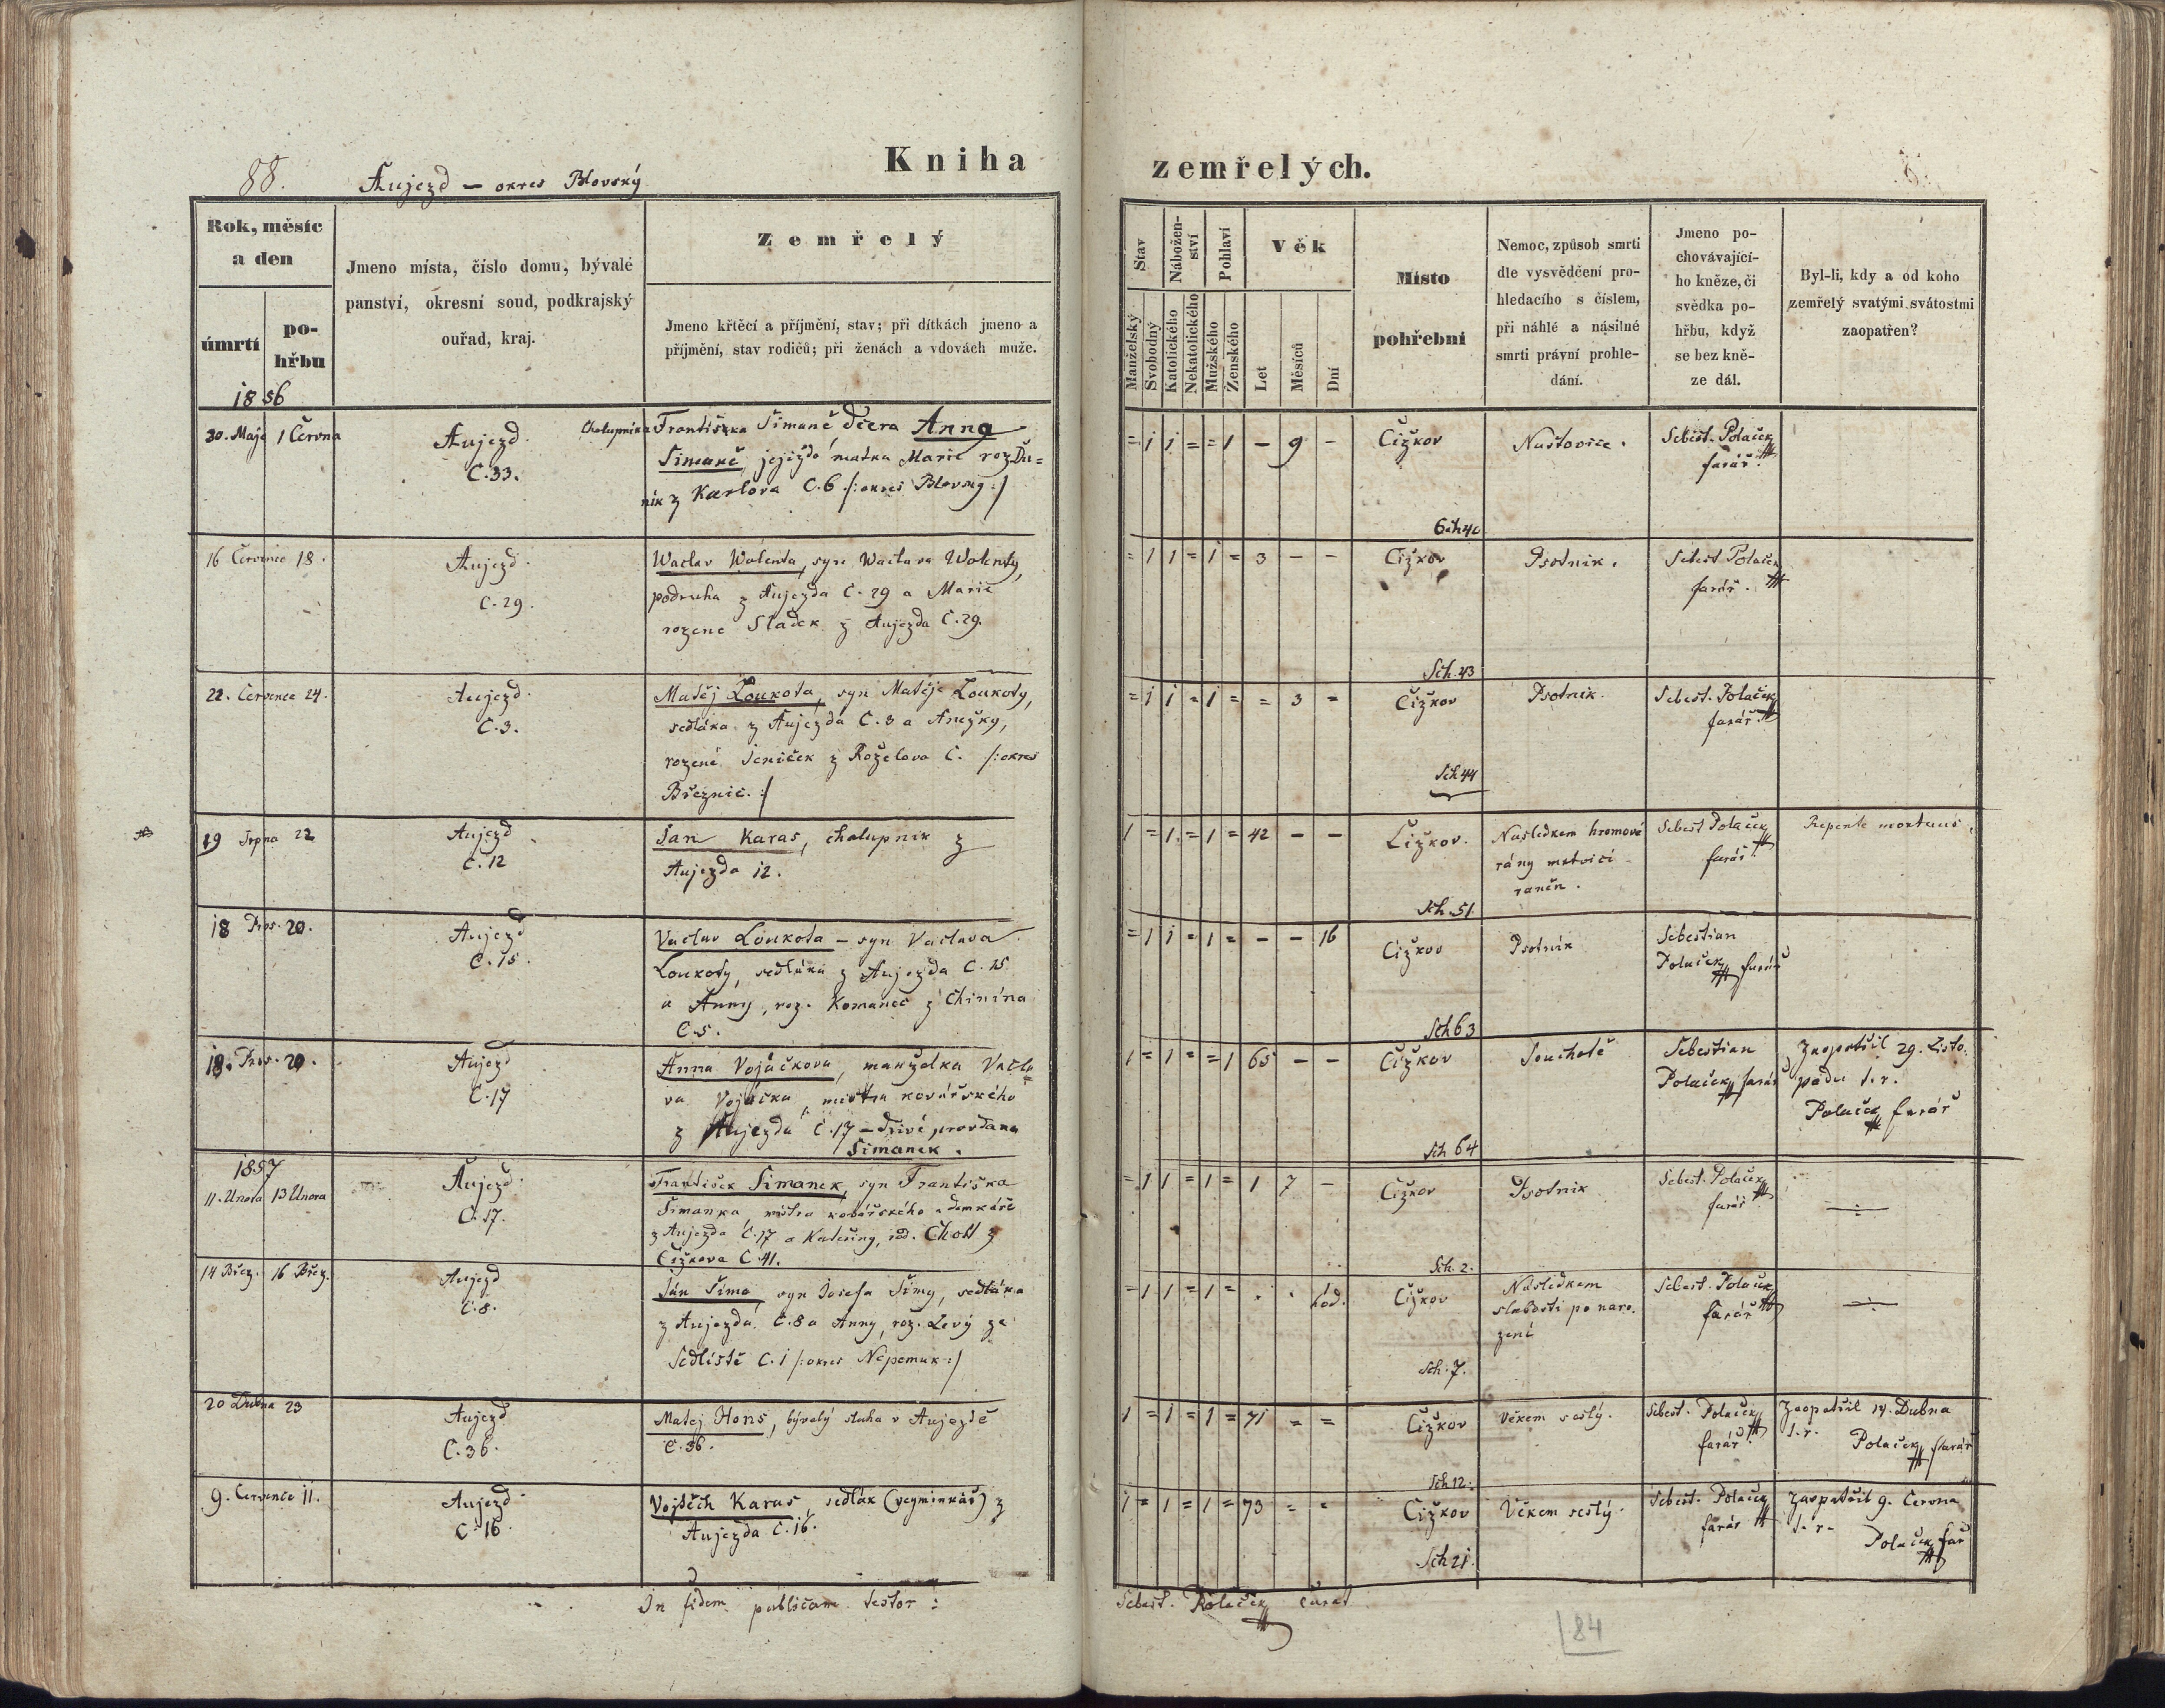 Kniha zemřelých.
88. Aujezd – okres Blovský
Rok, měsíc a den
úmrtí
pohřbu
Jmeno místa, číslo domu, bývalé panství, okresní soud, podkrajský ouřad, kraj.
Zemřelý
Jmeno křtěcí a příjmění, stav; při dítkách jmeno a příjmění, stav rodičů; při ženách a vdovách muže.
Stav
Manželský
Svobodný
Nábožen-ství
Katolického
Nekatolického
Pohlaví
Mužského
Ženského
Věk
Let
Měsíců
Dní
Místo pohřební
Nemoc, způsob smrti dle vysvědčení pro-hledacího s číslem, při náhlé a násilné smrti právní prohle-dání.
Jmeno po-chovávající-ho kněze, či svědka po-hřbu, když se bez kně-ze dál.
Byl-li, kdy a od koho zemřelý svatými svátostmi zaopatřen?
1856
30. Maje 1 Června
Aujezd
C. 33.
Chalupníka Františka Simaně dcera Anna
Simaně, jejížto matka Marie roz. Du=
ník z Karlova C. 6 /: okres Blovský :/
= 1 1 = = 1 – 9 –
Čižkov
Sch 40
Naštovice.
Sebest. Polaček
farář.
16 Července 18.
Aujezd
C. 29.
Waclav Wolenta, syn Waclava Wolenty,
podruha z Aujezda C. 29 a Marie
rozene Sladek z Aujezda C. 29.
= 1 1 = 1 = 3 – –
Čižkov
Sch. 43
Psotnik.
Sebest Polaček
farář.
22. Července 24.
Aujezd
C. 3.
Matěj Loukota, syn Matěje Loukoty,
sedláka z Aujezda C. 3 a Anežky,
rozené Jeniček z Roželova C. /: okres
Březnic. :/
= 1 1 = 1 = = 3 =
Čižkov
Sch 44
Psotnik.
Sebest. Polaček
farář.
19 Srpna 22
Aujezd
C. 12
Jan Karas, chalupnik z
Aujezda 12.
1 = 1 = 1 = 42 – –
Čižkov.
Sch. 51
Nasledkem hromové
rány mrtvici
raněn.
Sebest Polaček
farář.
Repente mortuus.
18 Pros. 20.
Aujezd
C. 15.
Vaclav Loukota – syn Vaclava
Loukoty, sedláka z Aujezda C. 15
a Anny, roz. Komanec z Chinína
C. 5.
= 1 1 = 1 = – – 16
Čižkov
Sch 63
Psotnik
Sebestian
Polaček farář
18. Pros. 20.
Aujezd
C. 17
Anna Vojáčkova, manželka Václa
va Vojáčka, mistra kovářského
z Aujezda C. 17 – dřive provdana
Simanek.
1 = 1 = = 1 65 – –
Čižkov
Sch 64
Souchotě
Sebestian
Polaček farář
Zaopatřil 29. Listo.
padu t. r.
Polaček farář
1857
11. Unora 13 Unora
Aujezd
C. 17.
František Simanek, syn Františka
Simanka, mistra kovářského a domkáře
z Aujezda C. 17 a Kateřiny, rod. Chott z
Čižkova C. 41.
= 1 1 = 1 = 1 7 –
Čižkov
Sch. 2.
Psotnik
Sebest. Polaček
farář.
14 Břez. 16 Břez.
Aujezd
C. 8.
Ján Šima, syn Josefa Šimy, sedláka
z Aujezda C. 8 a Anny, roz. Levý ze
Sedliště C. 1 /: okres Nepomuk :/
= 1 1 = 1 = . . hod.
Čižkov
Sch. 7.
Následkem
slabosti po naro.
zeni
Sebest. Polaček
farář
20 Dubna 23
Aujezd
C. 36.
Matej Hons, bývalý sluha v Aujezdě
C. 36.
1 = 1 = 1 = 71 = =
Čižkov
Sch 12.
Věkem sešlý.
Sebest. Polaček
farář.
Zaopatřil 14. Dubna
t. r.
Polaček farář
9. Července 11.
Aujezd
C. 16.
Vojtěch Karas, sedlák (veyminkář) z
Aujezda C. 16.
1 = 1 = 1 = 73 = =
Čižkov
Sch 21.
Věkem sešlý.
Sebest. Polaček
farář
Zaopatřil 9. Června
t. r.
Polaček far
In fidem publicam testor:
Sebest. Polaček curat
84